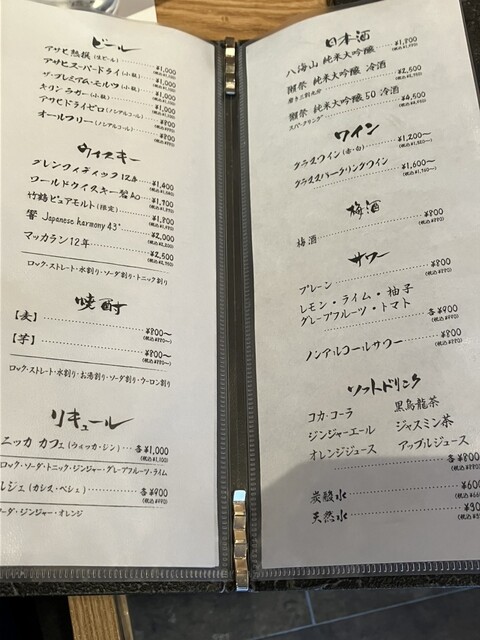 ビール
アサヒ熟撰(生ビール) ¥1,000
(税込¥1,100)
アサヒスーパードライ(小瓶) ¥1,000
(税込¥1,100)
ザ・プレミアム・モルツ(小瓶) ¥1,000
(税込¥1,100)
キリンラガー(小瓶) ¥1,000
(税込¥1,100)
アサヒドライゼロ(ノンアルコール) ¥800
(税込¥880)
オールフリー(ノンアルコール) ¥800
(税込¥880)
ウイスキー
グレンフィディック12年 ¥1,400
(税込¥1,540)
ワールドウイスキー碧Ao ¥1,700
(税込¥1,870)
竹鶴ピュアモルト(限定) ¥1,800
(税込¥1,980)
響 Japanese harmony 43° ¥2,000
(税込¥2,200)
マッカラン12年 ¥2,500
(税込¥2,750)
ロック・ストレート・水割り・ソーダ割り・トニック割り
焼酎
【麦】 ¥800〜
(税込¥880〜)
【芋】 ¥800〜
(税込¥880〜)
ロック・ストレート・水割り・お湯割り・ソーダ割り・ウーロン割り
リキュール
ニッカ カフェ(ウィッカ・ジン) 各¥1,000
(税込¥1,100)
ロック・ソーダ・トニック・ジンジャー・グレープフルーツ・ライム
ルジェ(カシス・ペシェ) 各¥900
(税込¥990)
ーダ・ジンジャー・オレンジ
日本酒
八海山 純米大吟醸 ¥1,800
(税込¥1,980)
獺祭 純米大吟醸 冷酒 ¥2,500
磨き三割九分 (税込¥2,750)
獺祭 純米大吟醸50 冷酒 ¥4,500
スパークリング (税込¥4,950)
ワイン
グラスワイン(赤・白) ¥1,200〜
(税込¥1,320〜)
グラススパークリングワイン ¥1,600〜
(税込¥1,760〜)
梅酒
梅酒 ¥800
(税込¥880)
サワー
プレーン ¥800
(税込¥880)
レモン・ライム・柚子
グレープフルーツ・トマト 各¥900
(税込¥990)
ノンアルコールサワー ¥800
(税込¥880)
ソフトドリンク
コカ・コーラ 黒烏龍茶
ジンジャーエール ジャスミン茶
オレンジジュース アップルジュース
各¥800
(税込¥880)
炭酸水 ¥600
(税込¥66
天然水 ¥90
(税込¥99